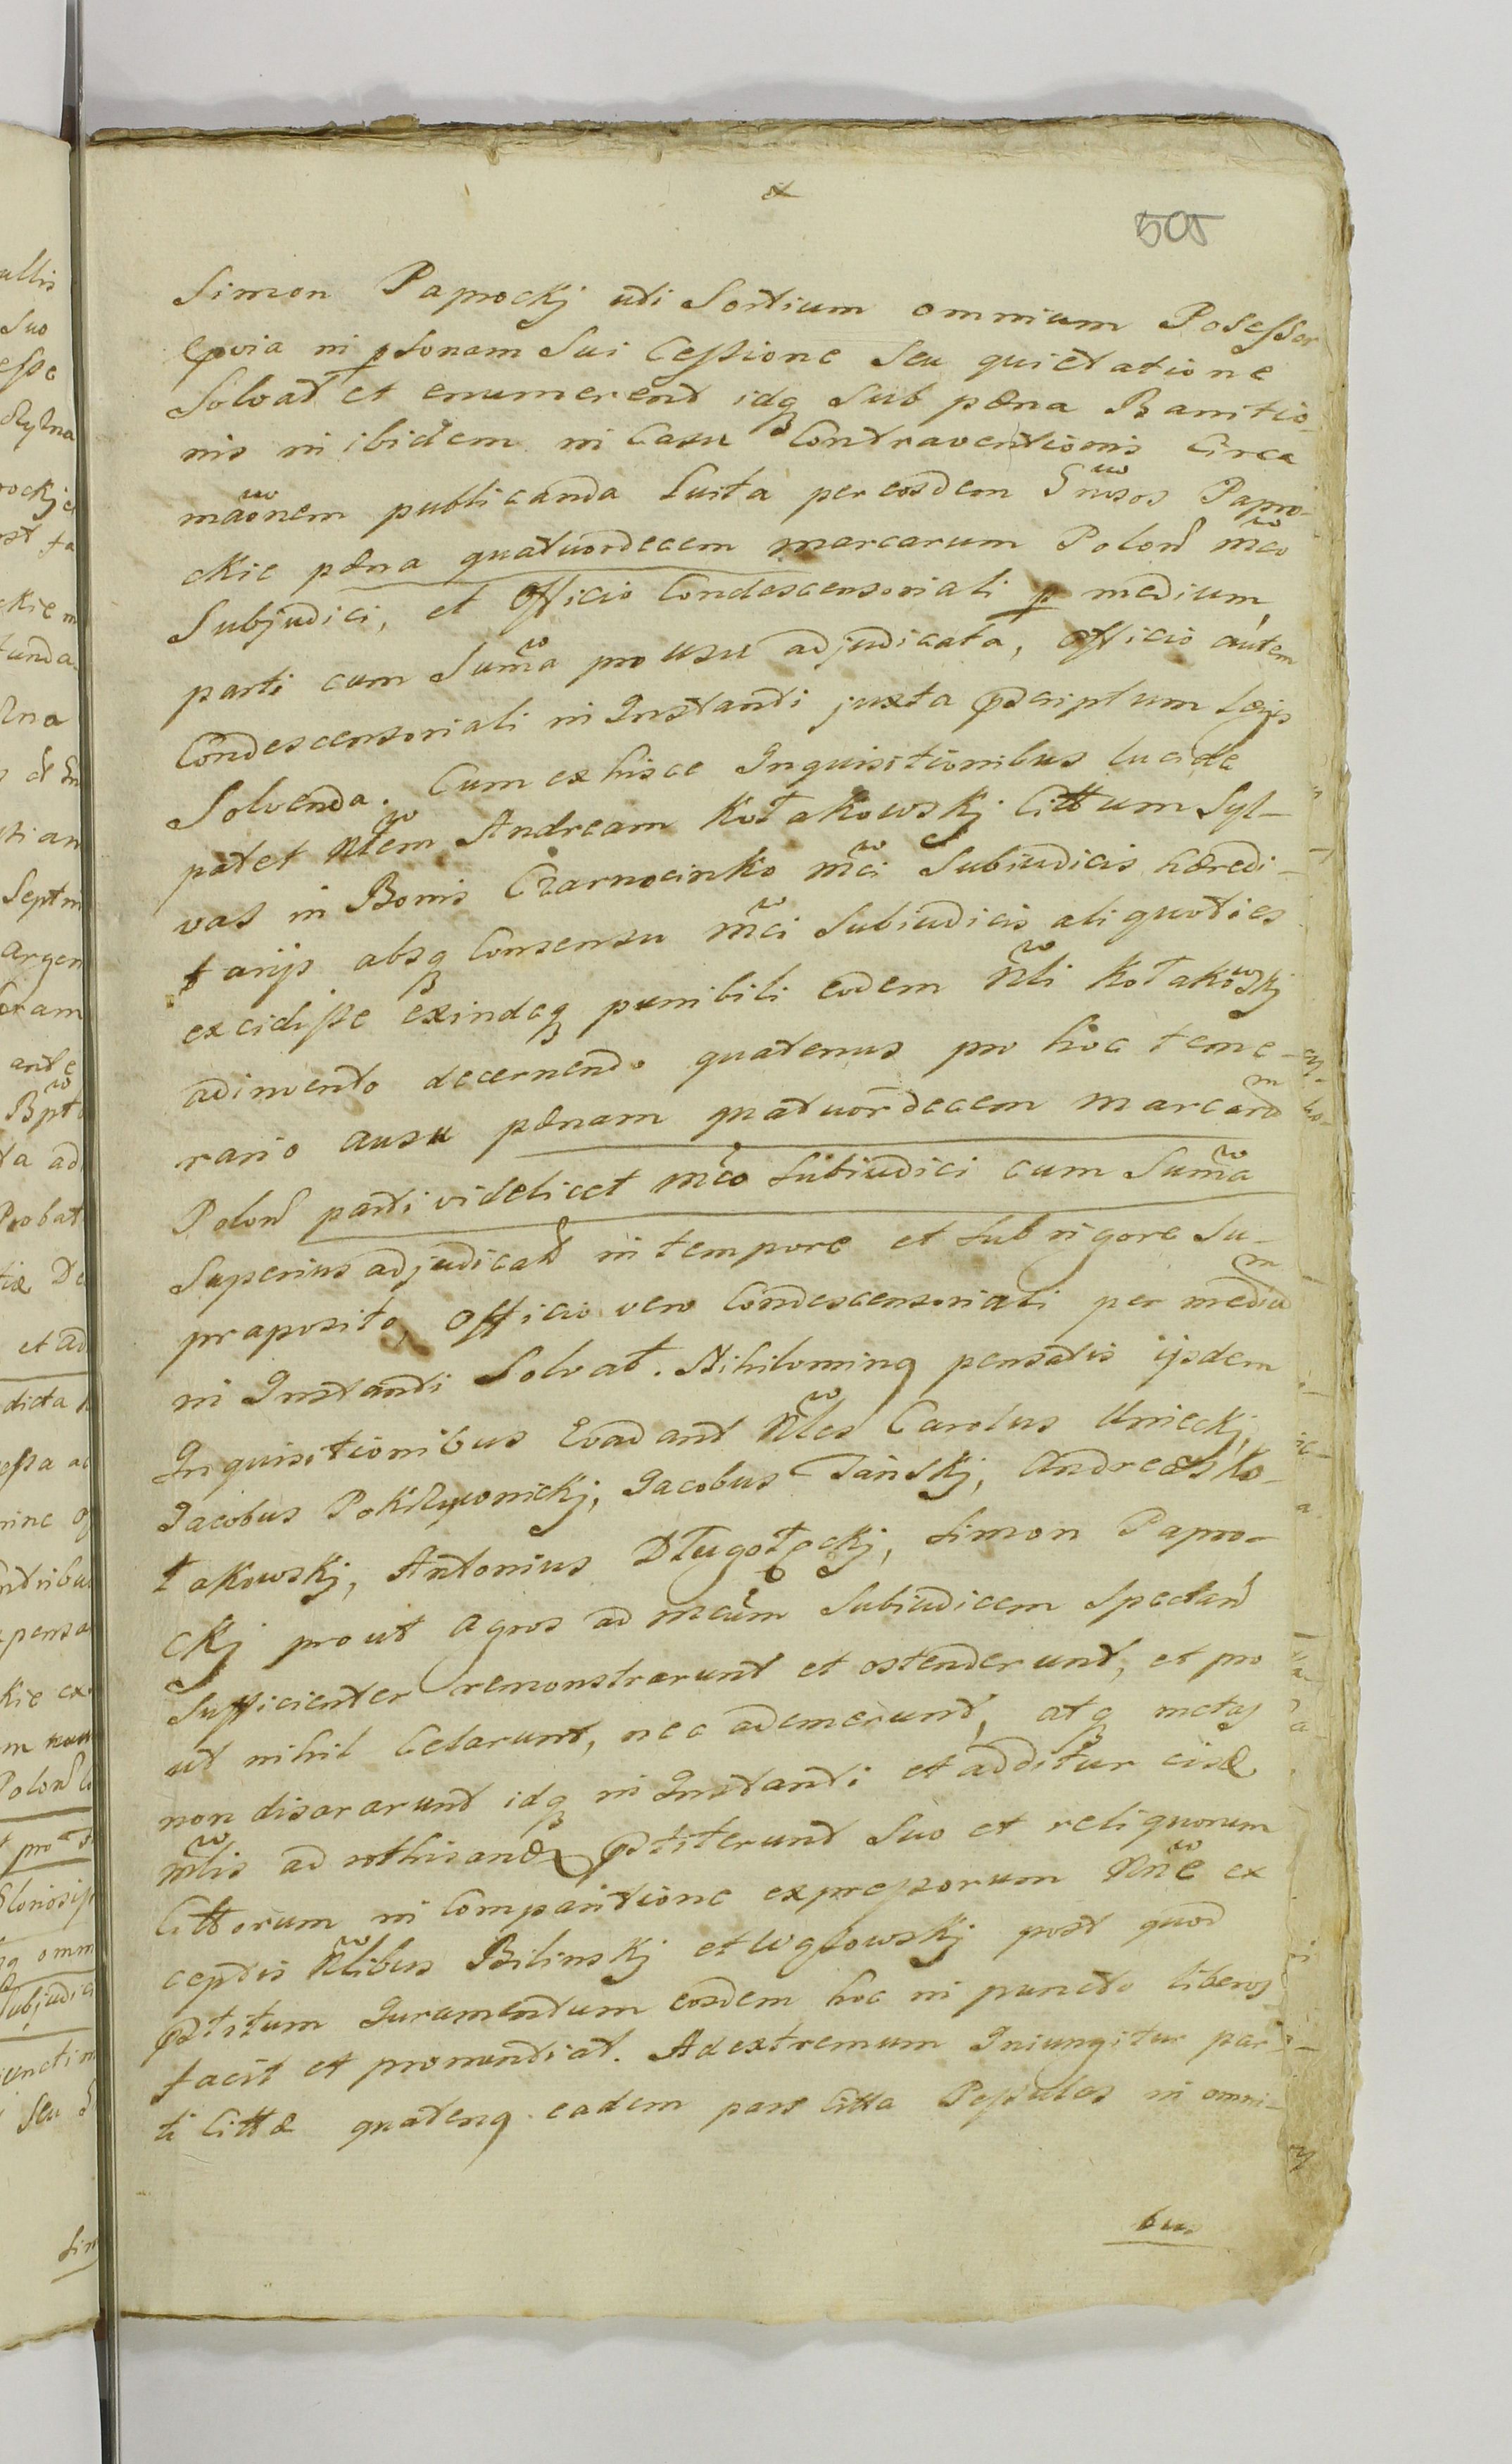 505
Simon Paprockj uti Sortium omnium Posessor
ꝓvia in ꝑsonam Sui Cessione Seu quietatione
Solvat et enumerent idq Sub pæna Banitio-
nis in ibidem in Casu Contraventionis Circa
mãonem publicanda Luita per eosdem Gnĩsos Papro-
ckie pæna quatuordecem marcarum Polon mco
Subjudici, et Officio Condescensoriali ꝑ medium,
parti cum Suma pro usu adjudicata, Officio autem
Condescensoriali in Instanti juxta ꝓscriptum Legis
Solvenda. Cum ex hisce Inquisitionibus lucide
patet Nlem Andream Kołakowskj Cittum Syl-
vas in Bonis Czarnocinko mci Subiudicis hæredi-
tarijs absq Consensu mci Subiudicis aliquoties
excidisse exindeq punibili eodem Nli Kołakowskj
adinvento decernendo quatenus pro hoc teme-
rario ausu pænam quatuordecem marcarũ
Polon parti videlicet mco Subiudici cum Suma
Superius adjudicata in tempore et Sub rigore Su-
praposito, Officio vero Condescensoriali per mediũ
in Instanti Solvat. Nihilominq pensatis ijsdem
Inquisitionibus Evadant Nles Carolus Unieckj,
Jacobus Pokrzywnickj, Jacobus Tanskj, Andreas Ko-
łakowskj, Antonius Długołęckj, Simon Papro-
ckj prout agros ad mcum Subiudicem Spectan
Sufficienter remonstrarunt et ostenderunt, et pro
ut nihil Celarunt, nec ademerunt, atq metas
non disararunt idq in Instanti et additur eisd
mlis ad rothisand ꝓstiterunt Suo et reliquorum
Cittorum in Comparitione expressorum Nne ex
ceptis Nlibus Bilinskj et Węzowskj post quod
ꝓstitum Juramentum eosdem hoc in puncto liberos
facit et pronuntiat. Ad extremum Iniungitur par-
ti Cittæ quatenq eadem pars Citta Pessulas in omni-
bus